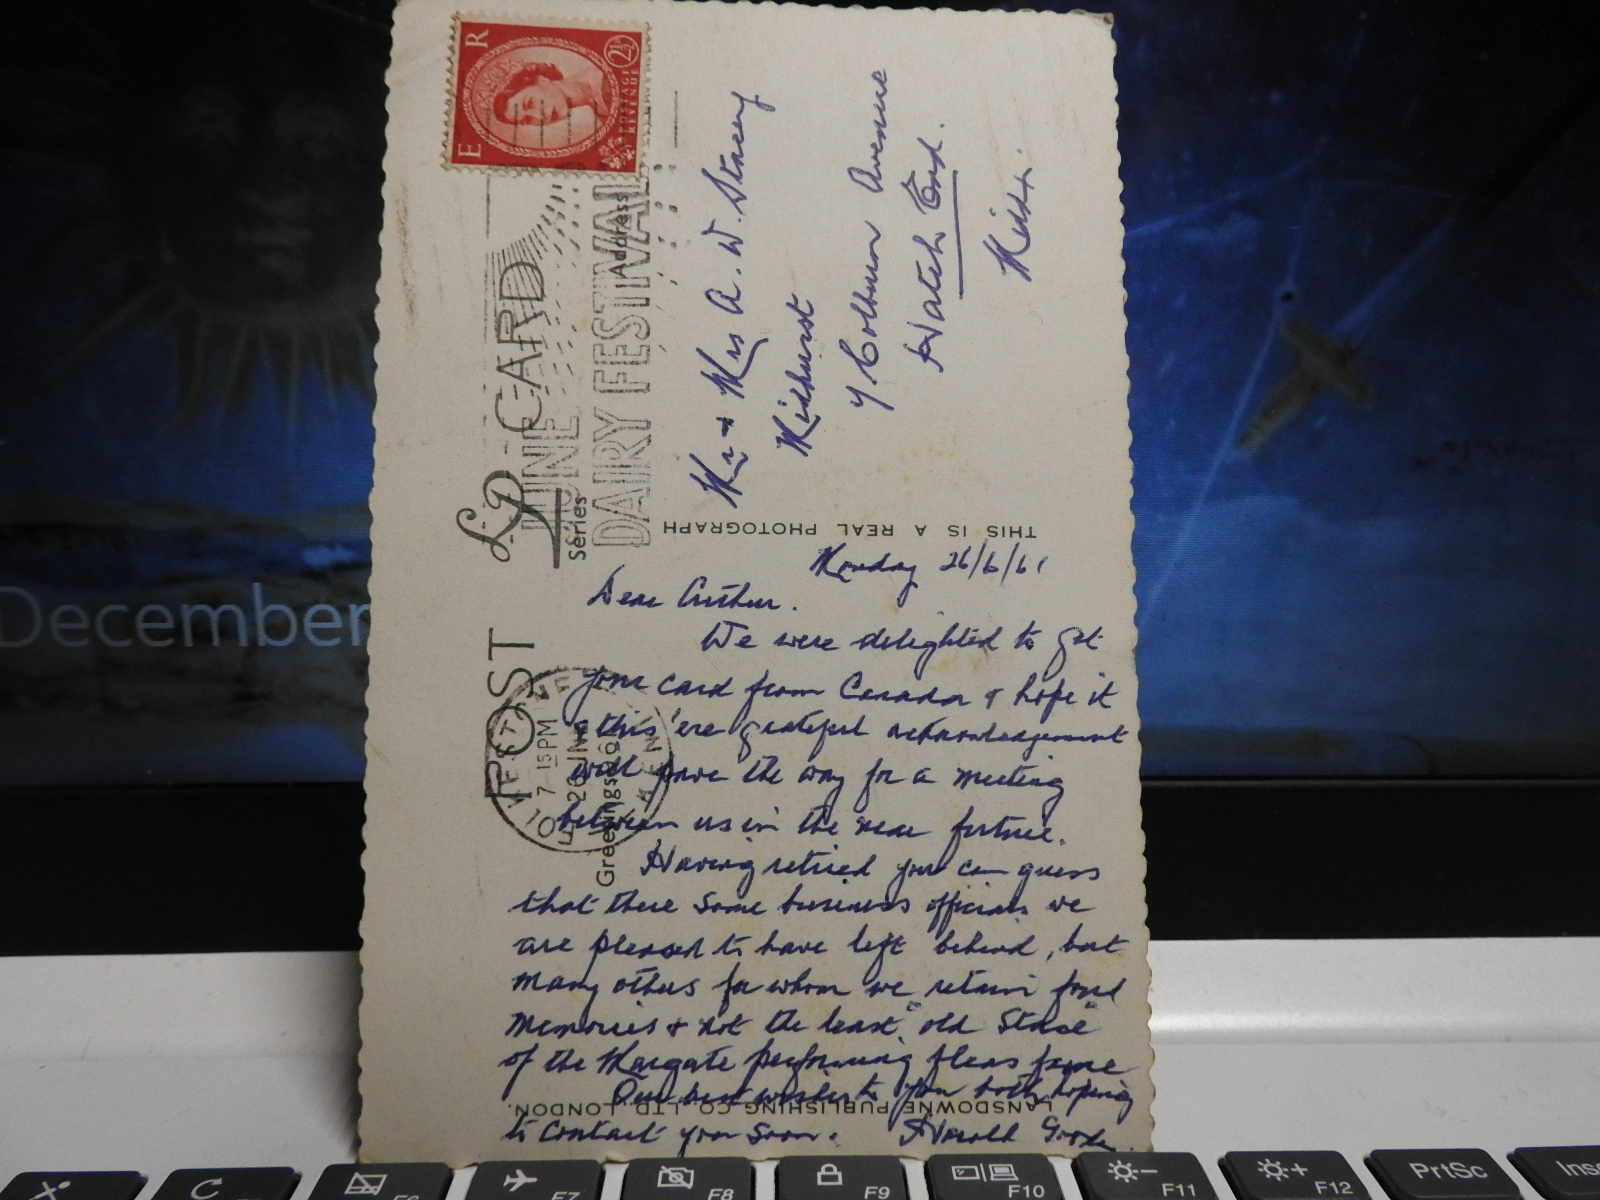 E R
2½
POSTAGE
REVENUE
POST CARD
LP
Series
JUNE
DAIRY FESTIVAL
Address
Greetings
7-15 PM
26 JNE
Mr & Mrs A. W. Stacey
Midhurst
7 Colburn Avenue
Hatch End.
Middx.
THIS IS A REAL PHOTOGRAPH
Monday 26/6/61
Dear Arthur.
We were delighted to get
your card from Canada & hope it
& this 'ere grateful acknowledgement
will pave the way for a meeting
between us in the near future.
Having retired you can guess
that there some business officials we
are pleased to have left behind, but
many others for whom we retain fond
memories & not the least "old Stace"
of the Margate performing fleas fame
Our best wishes to you both, hoping
to contact you soon. Harold
LANSDOWNE PUBLISHING CO. LTD. LONDON.
December
F6
F7
F8
F9
F10
F11
F12
PrtSc
Ins